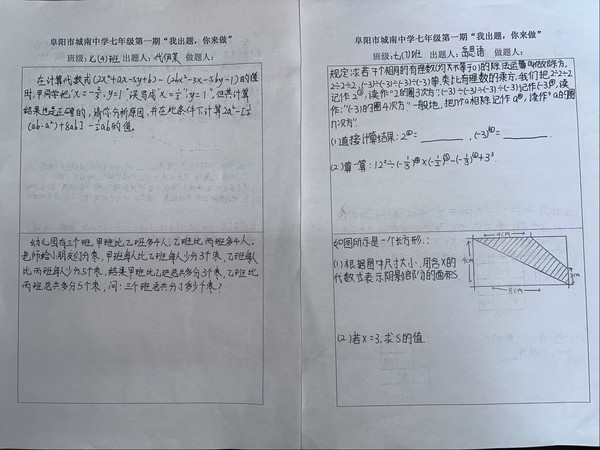 阜阳市城南中学七年级第一期“我出题，你来做”
班级：七(4)班 出题人：代伊菜 做题人：
在计算代数式(2x²+ax-5y+b)-(2bx²-3x-5by-1)的值
时,甲同学把“x=-⅔,y=1”误写成“x=⅔,y=1”,但其计算
结果也是正确的,请你分析原因,并在此条件下计算
幼儿园有三个班,甲班比乙班多4人,乙班比丙班多4人,
老师给小朋友们分枣,甲班每人比乙班每人少分3个枣,乙班每人
比丙班每人少分5个枣,结果甲班比乙班总共多分3个枣,乙班比
丙班总共多分5个枣,问:三个班总共分了多少个枣?
阜阳市城南中学七年级第一期“我出题，你来做”
班级：七(7)班 出题人： 做题人：
规定:求若干个相同的有理数(均不等于0)的除法运算叫做除方,
2÷2÷2,(-3)÷(-3)÷(-3)÷(-3)等,类比有理数的乘方,我们把2÷2÷2
记作2③,读作“2的圈3次方”,(-3)÷(-3)÷(-3)÷(-3)记作(-3)④,读
作:“(-3)的圈4次方”一般地,把n个a相除记作aⓝ,读作“a的圈
n次方”.
(1)直接计算结果:
(2)算一算:
如图所示是一个长方形.:
(1)根据图中尺寸大小,用含x的
代数式表示阴影部分的面积S.
4cm
8cm
(2)若x=3,求S的值